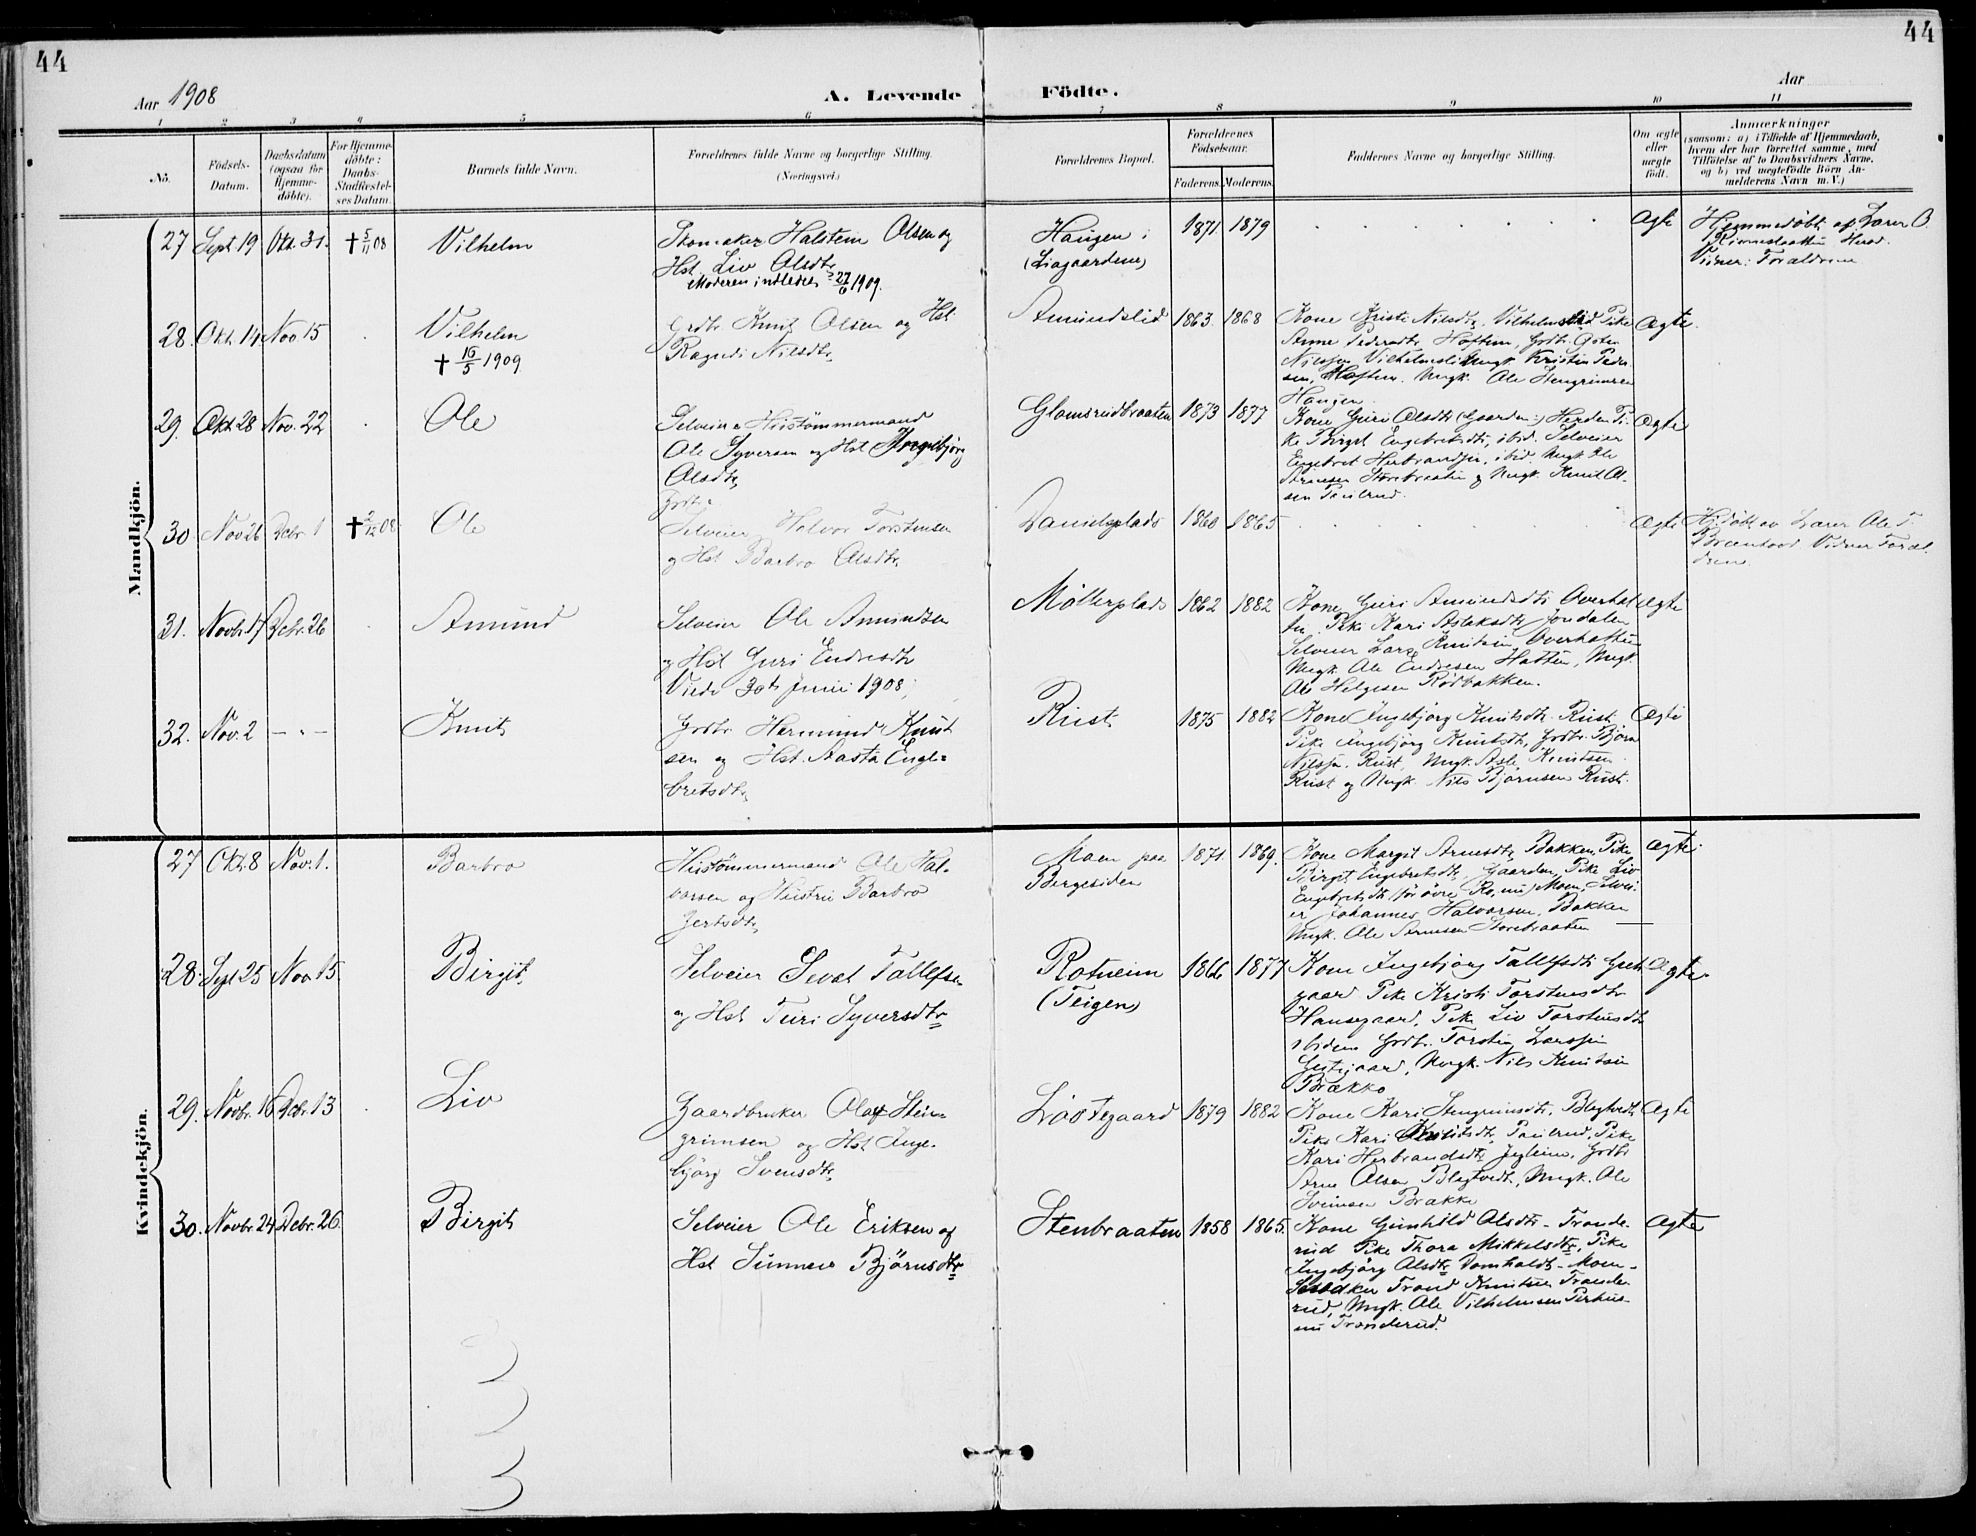 44
44
Aar 1908
A. Levende Födte.
Aar
1 2 3 4 5 6 7 8 9 10 11
No.
Födsels-Datum.
Daabsdatum (ogsaa for Hjemme-döbte).
For Hjemme-döbte: Daabs-Stadfæstel-ses Datum.
Barnets fulde Navn.
Forældrenes fulde Navne og borgerlige Stilling. (Næringsvei.)
Forældrenes Bopæl.
Forældrenes Födselsaar.
Faderens. Moderens.
Faddernes Navne og borgerlige Stilling.
Om ægte eller uægte födt.
Anmærkninger
(saasom: a) i Tilfælde af Hjemmedaab,
hvem der har forrettet samme, med
Tilföielse af to Daabsvidners Navne,
og b) ved uægtefödte Börn An-
melderens Navn m. V.)
Mandkjön.
27 Sept 19 Okt. 31. † 5/11 08 Vilhelm
Skomaker Halstein Olsen og
Hst. Liv Olsdtr
Moderen indledes 27/6 1909.
Haugen i
(Liagaardene)
1871 1879
Ægte
Hjemmedøbt af Lærer O.
Vidner: Forældrene
28. Okt. 14 Nov. 15 Vilhelm
† 16/5 1909
Grdbr Knut Olsen og Hst
Ragndi Nilsdtr
Amundslid 1863 1868
Kone Kristi Nilsdtr Vilhelmslid Pike
Anne Pedersdtr Haftun, Grdbr. Østen
Nilssen Vilhelmslid Ungk. Kristin Peder
sen, Haftun. Ungk. Ole Hengrimsen
Haugen.
Ægte.
29. Okt. 28 Nov. 22 Ole
Selveier & Hustömmermand
Ole Syversen og Hst Ingebjörg
Olsdtr
Glomsrudbraaten 1873 1877
Kone Guri Olsdtr (Gaarden) Hesden Pi-
ke Birgit Engebretsdtr, ibid. Selveier
Engebret Herbrandsen, ibid Ungk Ole
Arnesen Storebraaten og Ungk. Knut Ol-
sen Paulrud.
Ægte
30 Nov 26 Debr. 1 † 2/12 08 Ole
Selveier Halvor Torstensen
og Hst Barbro Olsdtr.
Danielsplads 1860 1865
Ægte
Hjdøbt av Lærer Ole T.
Braenhovd Vidner Foræl
drene.
31. Novbr. 17 Debr. 26 Amund
Selveier Ole Amundsen
og Hst Guri Endresdtr
Viede 30te Juni 1908,
Møllerplads 1862 1882
Kone Guri Amundsdtr Overhat
ten Pike Kari Aslaksdtr Jondalen
Selveier Lars Knutsen Overhatten
Ungk. Ole Endresen Hatten, Ungk.
Ole Helgesen Rødbakken.
Ægte
32. Nov. 2 – „ – Knut
Grdbr Hermund Knut
sen og Hst. Aasta Engle=
bretsdtr
Rust 1875 1882
Kone Ingebjörg Knutsdtr. Rust
Pike Ingebjörg Knutsdtr, Grdbr. Björn
Nilssen Rust, Ungk. Asle Knutsen
Rust og Ungk. Nils Björnsen Rust.
Ægte
Kvindekjön.
27 Okt. 8 Nov. 1. Barbro
Hustömmermand Ole Hal-
vorsen og Hustru Barbro
Gertsdtr
Moen paa
Bergesiden
1871. 1869.
Kone Margit Arnesdtr Bakken, Pike
Birgit Engebretsdtr Gaarden, Pike Liv
Engebretsdtr Moen, Selvei-
er Johannes Halvorsen, Bakken
Ungk. Ole Arnesen Storebraaten
Ægte.
28. Sept 25 Nov. 15. Birgit
Selveier Sevat Tollefsen
og Hst Turi Syversdtr
Rotneim
(Teigen)
1866 1877
Kone Ingebjörg Tollefsdtr
gaard Pike Kristi Torstensdtr
Hansegaard, Pike Liv Torstensdtr
ibidem Grdbr. Torsten Larssen
Gutegaard, Ungk. Nils Knutsen
Brækko
Ægte.
29. Novbr. 16 Debr. 13 Liv
Gaardbruker Olaf Stein-
grimsen og Hst. Inge-
björg Svensdtr
Lóstegaard 1879 1882
Kone Kari Stengrimsdtr, Blagtvedt
Pike Kari Knutsdtr, Paulrud, Pike
Kari Herbrandsdtr Jegleim, Grdbr
Arne Olsen Blagtvedt, Ungk. Ole
Svensen Brække
Ægte
30. Novbr. 24 Debr. 26. Birgit
Selveier Ole Eriksen og
Hst Sunneve Björnsdtr
Stenbraaten 1858 1865.
Kone Gunhild Olsdtr – Tronde-
rud Pike Thora Mikkelsdtr, Pike
Ingebjörg Olsdtr Domholdt – Moen –
Trond Knutsen Tronde-
rud, Ungk. Ole Vilhelmsen
Tronderud.
Ægte